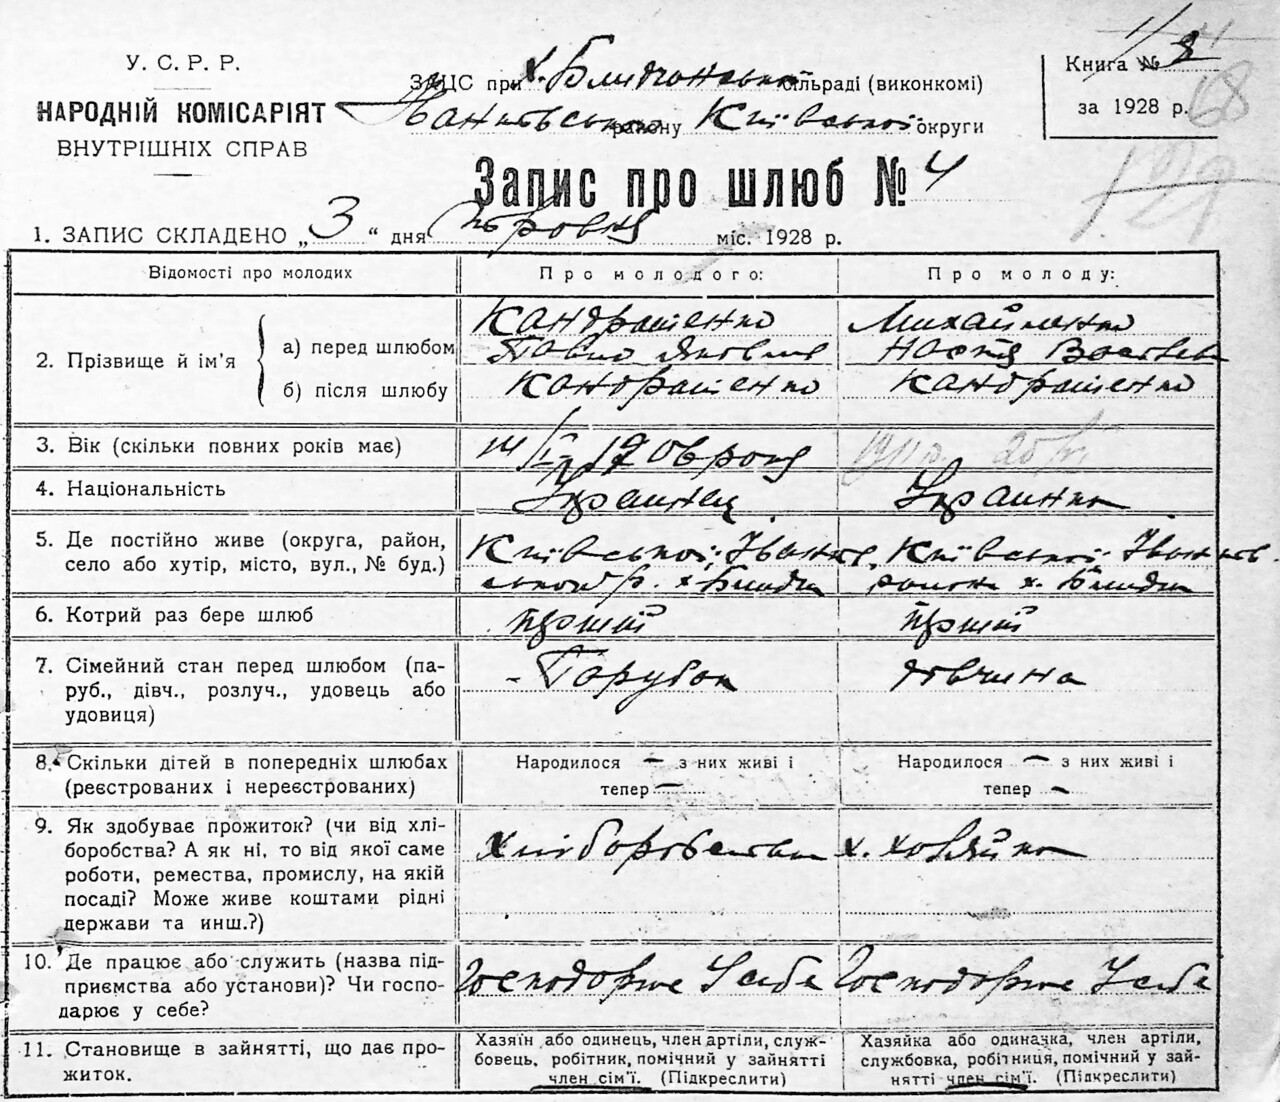 У. С. Р. Р.
НАРОДНІЙ КОМІСАРІЯТ
ВНУТРІШНІХ СПРАВ
ЗАЦС при х. Блидчанській сільраді (виконкомі)
Іванківського району Київської округи
Книга №
за 1928 р.
68
Запис про шлюб № 4
1. ЗАПИС СКЛАДЕНО „3“ дня міс. 1928 р.
Відомості про молодих
Про молодого:
Про молоду:
2. Прізвище й ім’я
а) перед шлюбом
Кандратенко
Павло Якович
Михайленко
Настя
б) після шлюбу
Кандратенко
Кандратенко
3. Вік (скільки повних років має)
1906 рока
1911 р. 20 р.
4. Національність
Украинец
Украинка
5. Де постійно живе (округа, район,
село або хутір, місто, вул., № буд.)
Київської, Іванків
ського р. х
Київської Іванків
района х.
6. Котрий раз бере шлюб
перший
перший
7. Сімейний стан перед шлюбом (па-
руб., дівч., розлуч., удовець або
удовиця)
- Парубок
дівчина
8. Скільки дітей в попередніх шлюбах
(реєстрованих і нереєстрованих)
Народилося — з них живі і
тепер —
Народилося — з них живі і
тепер —
9. Як здобуває прожиток? (чи від хлі-
боробства? А як ні, то від якої саме
роботи, ремества, промислу, на якій
посаді? Може живе коштами рідні
держави та инш.?)
Хліборобства
х. хозяйка
10. Де працює або служить (назва під-
приємства або установи)? Чи госпо-
дарює у себе?
Господарює У себе
Господарює У себе
11. Становище в зайнятті, що дає про-
житок.
Хазяїн або одинець, член артіли, служ-
бовець, робітник, помічний у зайнятті
член сім’ї. (Підкреслити)
Хазяйка або одиначка, член артіли,
службовка, робітниця, помічний у зай-
нятті член сім’ї. (Підкреслити)